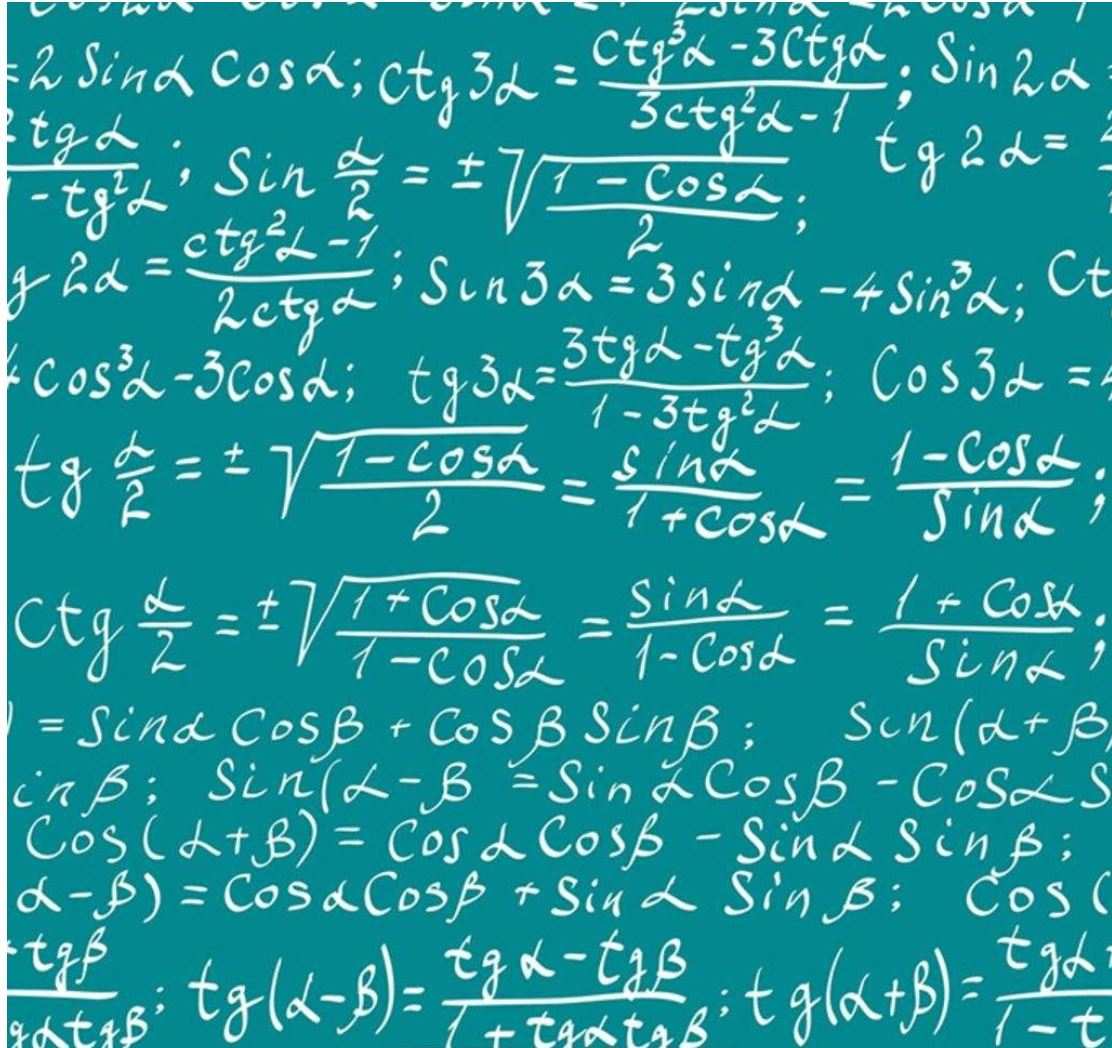 = 2 Sinα Cosα; ctg 3α = (ctg³α - 3Ctgα)/(3ctg²α - 1); Sin 2α
tgα/(1 - tg²α); Sin α/2 = ±√((1 - Cosα)/2); tg 2α =
g 2α = (ctg²α - 1)/(2ctgα); Sin3α = 3sinα - 4Sin³α; Ct
cos³α - 3Cosα; tg3α = (3tgα - tg³α)/(1 - 3tg²α); Cos3α =
tg α/2 = ±√((1 - cosα)/2) = sinα/(1 + cosα) = (1 - Cosα)/Sinα;
Ctg α/2 = ±√((1 + Cosα)/(1 - Cosα)) = Sinα/(1 - Cosα) = (1 + Cosα)/Sinα;
) = Sinα Cosβ + Cosβ Sinβ; Sin(α + β)
inβ; Sin(α - β = Sin α Cosβ - Cosα S
Cos(α + β) = Cosα Cosβ - Sinα Sinβ;
α - β) = Cosα Cosβ + Sinα Sinβ; Cos(
tgβ/gαtgβ; tg(α - β) = (tgα - tgβ)/(1 + tgαtgβ); tg(α + β) = tgα/1 - t